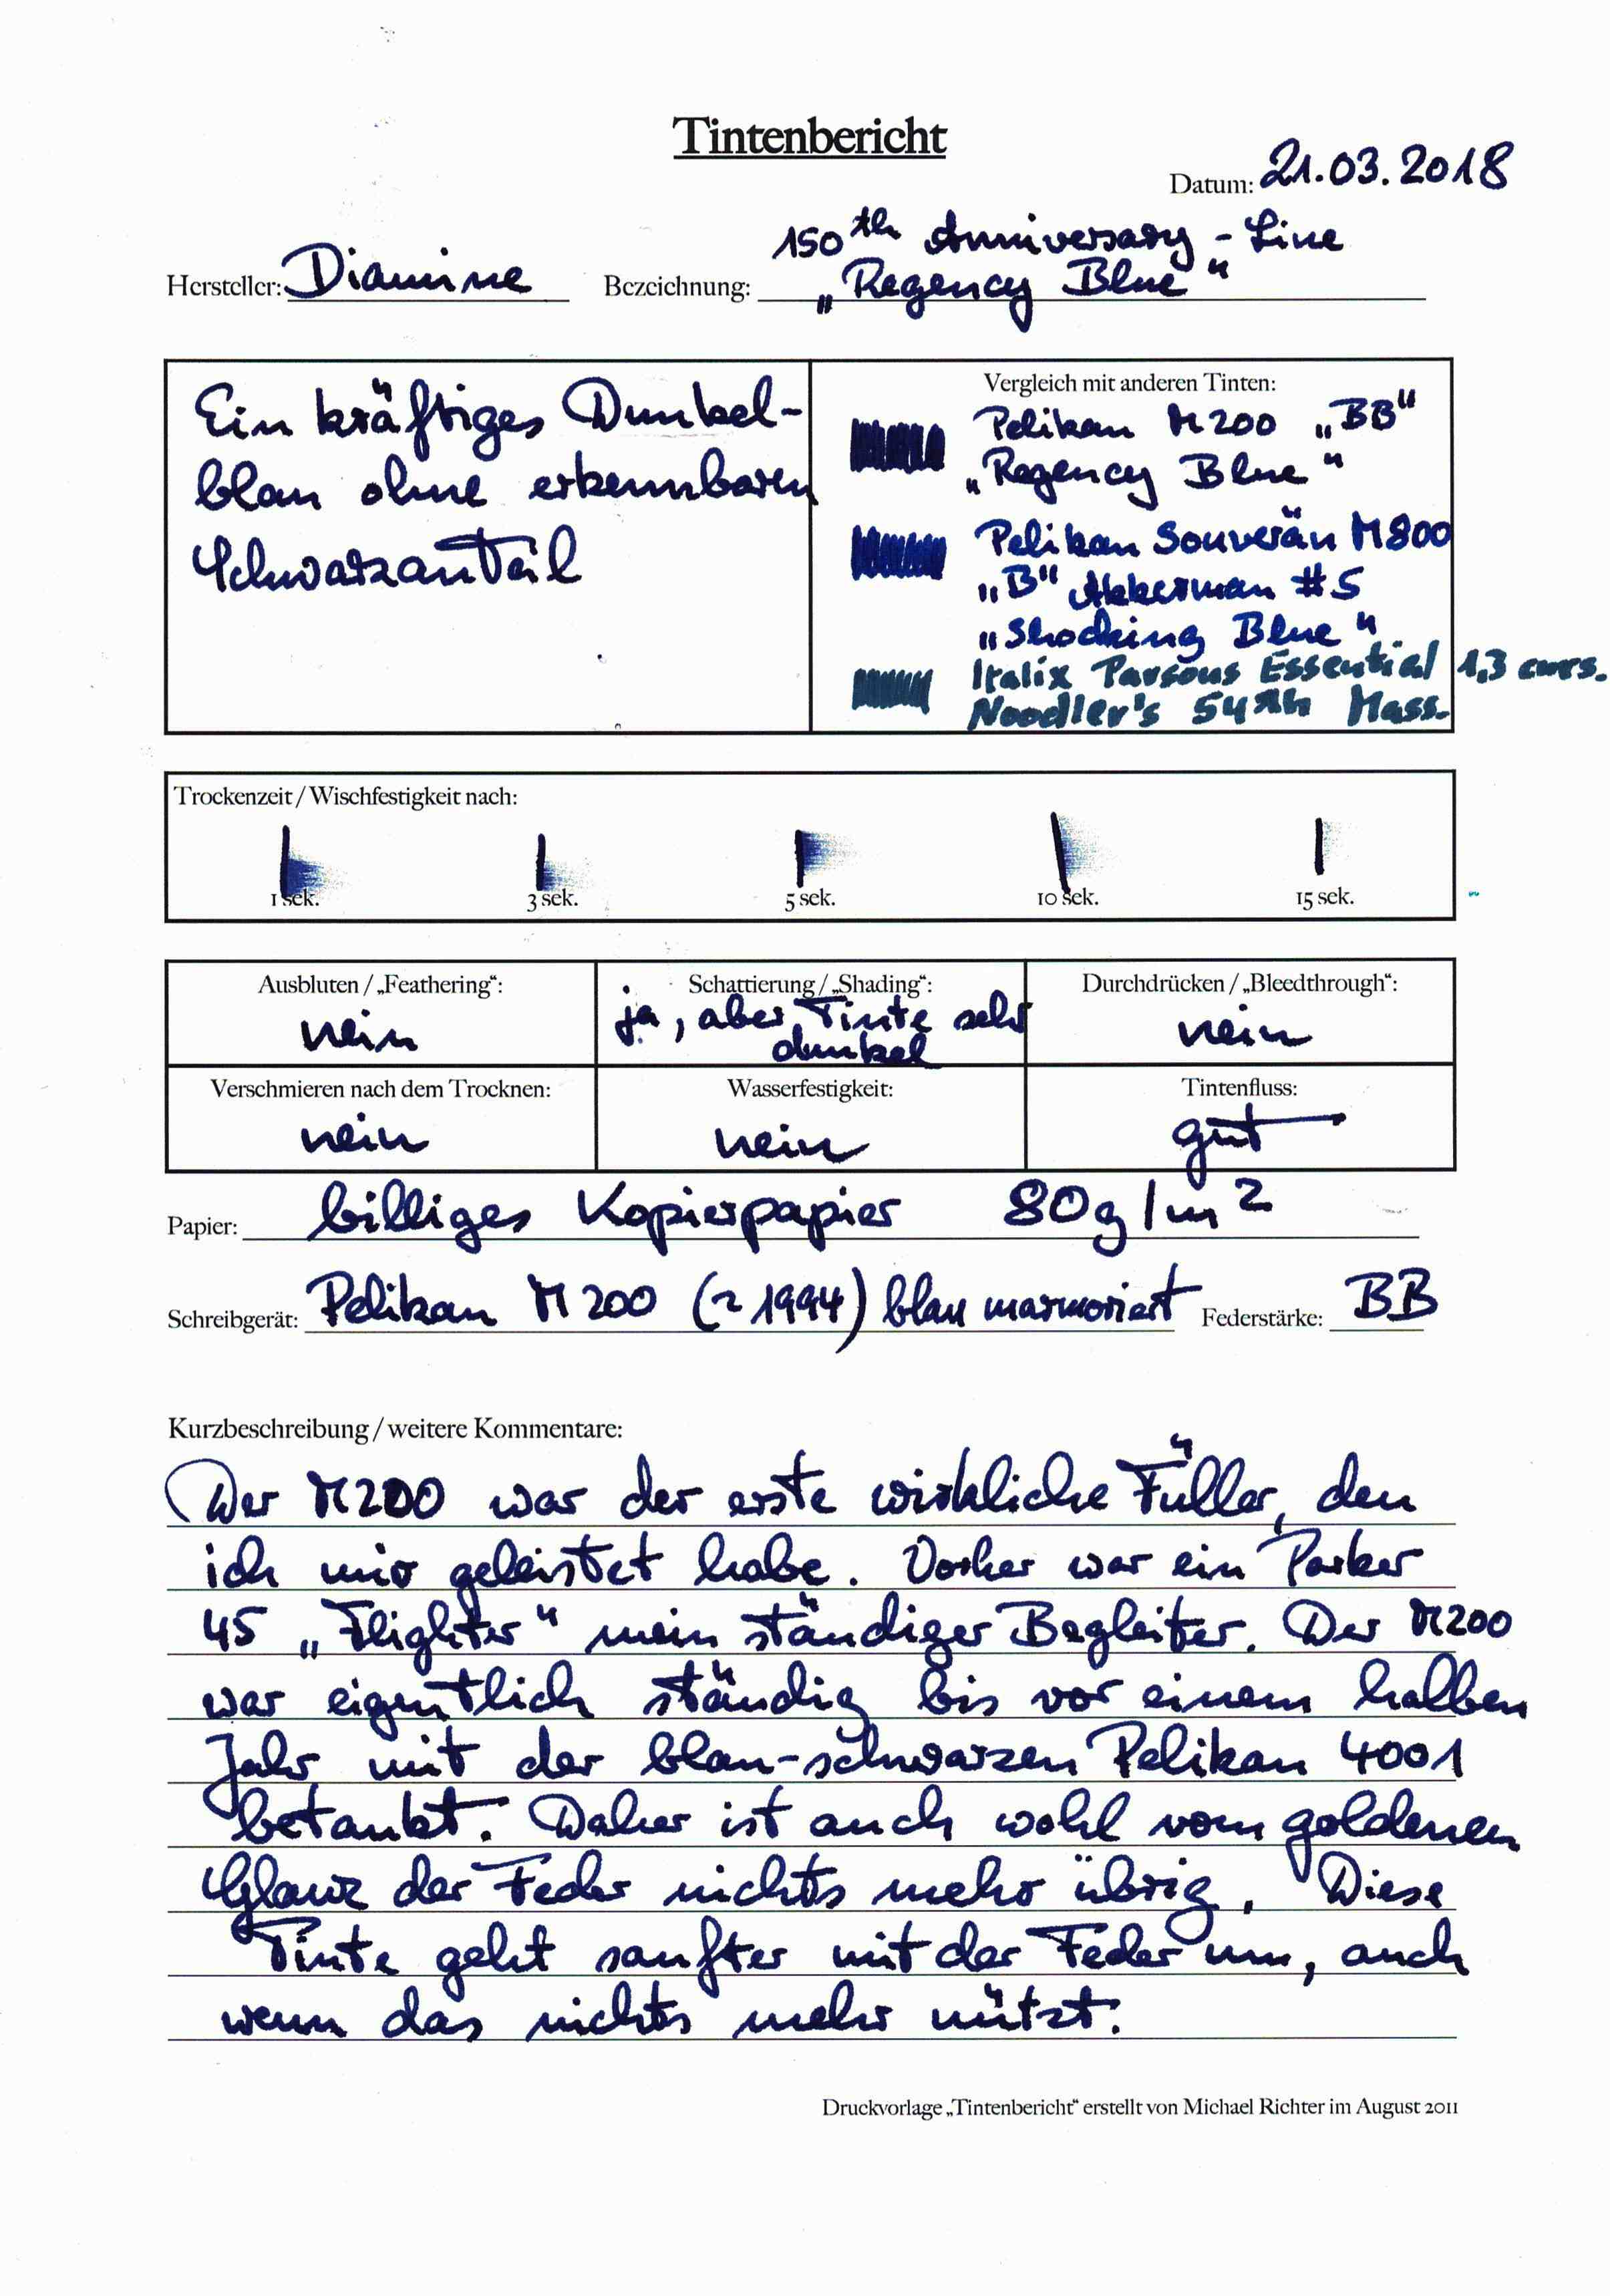 Tintenbericht
Datum: 21.03.2018
150th Anniversary - Line
Hersteller: Diamine Bezeichnung: „Regency Blue“
Ein kräftiges Dunkel-
blau ohne erkennbaren
Schwarzanteil
Vergleich mit anderen Tinten:
Pelikan M200 „BB“
„Regency Blue“
Pelikan Souverän M800
„B“ Akkerman #5
„Shocking Blue“
Italix Parsons Essential 1,3 curs.
Noodler's 54th Mass.
Trockenzeit / Wischfestigkeit nach:
1 sek. 3 sek. 5 sek. 10 sek. 15 sek.
Ausbluten / „Feathering“: Schattierung / „Shading“: Durchdrücken / „Bleedthrough“:
nein ja, aber Tinte sehr nein
dunkel
Verschmieren nach dem Trocknen: Wasserfestigkeit: Tintenfluss:
nein nein gut
Papier: billiges Kopierpapier 80g/m2
Schreibgerät: Pelikan M200 (~1994) blau marmoriert Federstärke: BB
Kurzbeschreibung / weitere Kommentare:
Der M200 war der erste wirkliche Füller, den
ich mir geleistet habe. Vorher war ein Parker
45 „Flighter“ mein ständiger Begleiter. Der M200
war eigentlich ständig bis vor einem halben
Jahr mit der blau-schwarzen Pelikan 4001
betankt. Daher ist auch wohl vom goldenen
Glanz der Feder nichts mehr übrig. Diese
Tinte geht sanfter mit der Feder um, auch
wenn das nichts mehr nützt.
Druckvorlage „Tintenbericht“ erstellt von Michael Richter im August 2011